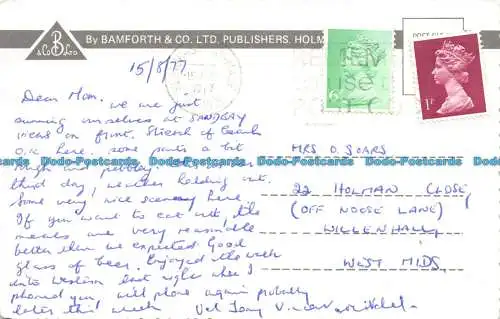 By BAMFORTH & CO. LTD. PUBLISHERS. HOLM
& Co B Ltd
15/8/77
Dear Mom, we are just
sunning ourselves at SANDBAY
views on front. Stretch of beach
O.K here, some parts a bit
rough and pebbly.
third day, weather holding out.
Some very nice scenery here.
If you want to eat out, the
meals are very reasonable
better then we expected. Good
glass of beer. Enjoyed the walk
into Weston last night when I
phoned you, will phone again probably
later this week
MRS O. SOARS
22 HOLMAN CLOSE,
(OFF NOOSE LANE)
WILLENHALL,
WEST MIDS,
6P
1P
Dodo-Postcards Dodo-Postcards Dodo-Postcards Dodo-Postcards Dodo-Postcards
Dodo-Postcards Dodo-Postcards Dodo-Postcards Dodo-Postcards Dodo-Postcards